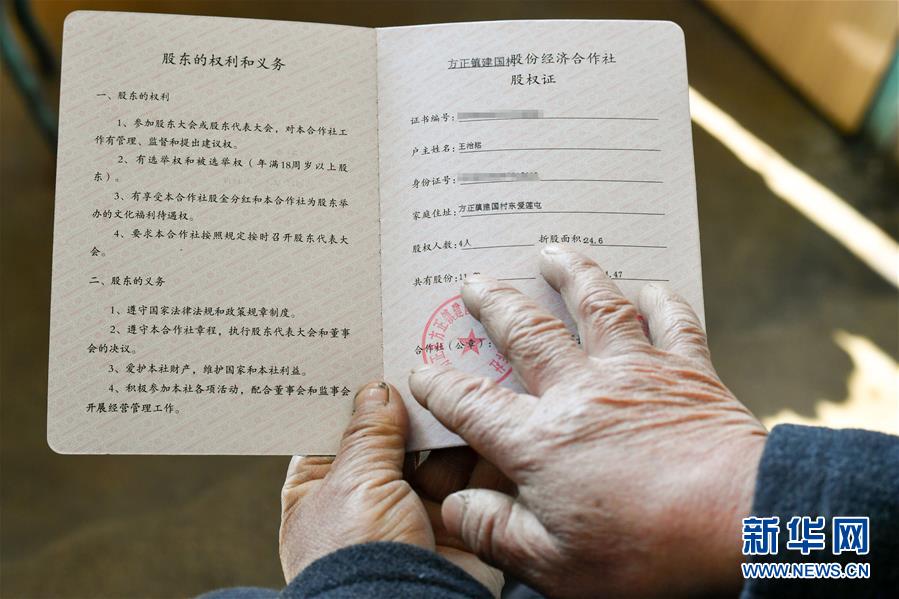 股东的权利和义务
一、股东的权利
1、参加股东大会或股东代表大会，对本合作社工
作有管理、监督和提出建议权。
2、有选举权和被选举权（年满18周岁以上股
东）。
3、有享受本合作社股金分红和本合作社为股东举
办的文化福利待遇权。
4、要求本合作社按照规定按时召开股东代表大
会。
二、股东的义务
1、遵守国家法律法规和政策规章制度。
2、遵守本合作社章程，执行股东代表大会和董事
会的决议。
3、爱护本社财产，维护国家和本社利益。
4、积极参加本社各项活动，配合董事会和监事会
开展经营管理工作。
方正镇建国村股份经济合作社
股权证
证书编号:
户主姓名:
身份证号:
家庭住址:方正镇建国村东爱莲屯
股权人数:4人 折股面积:24.6
共有股份:
合作社（公章）:
新华网
WWW.NEWS.CN